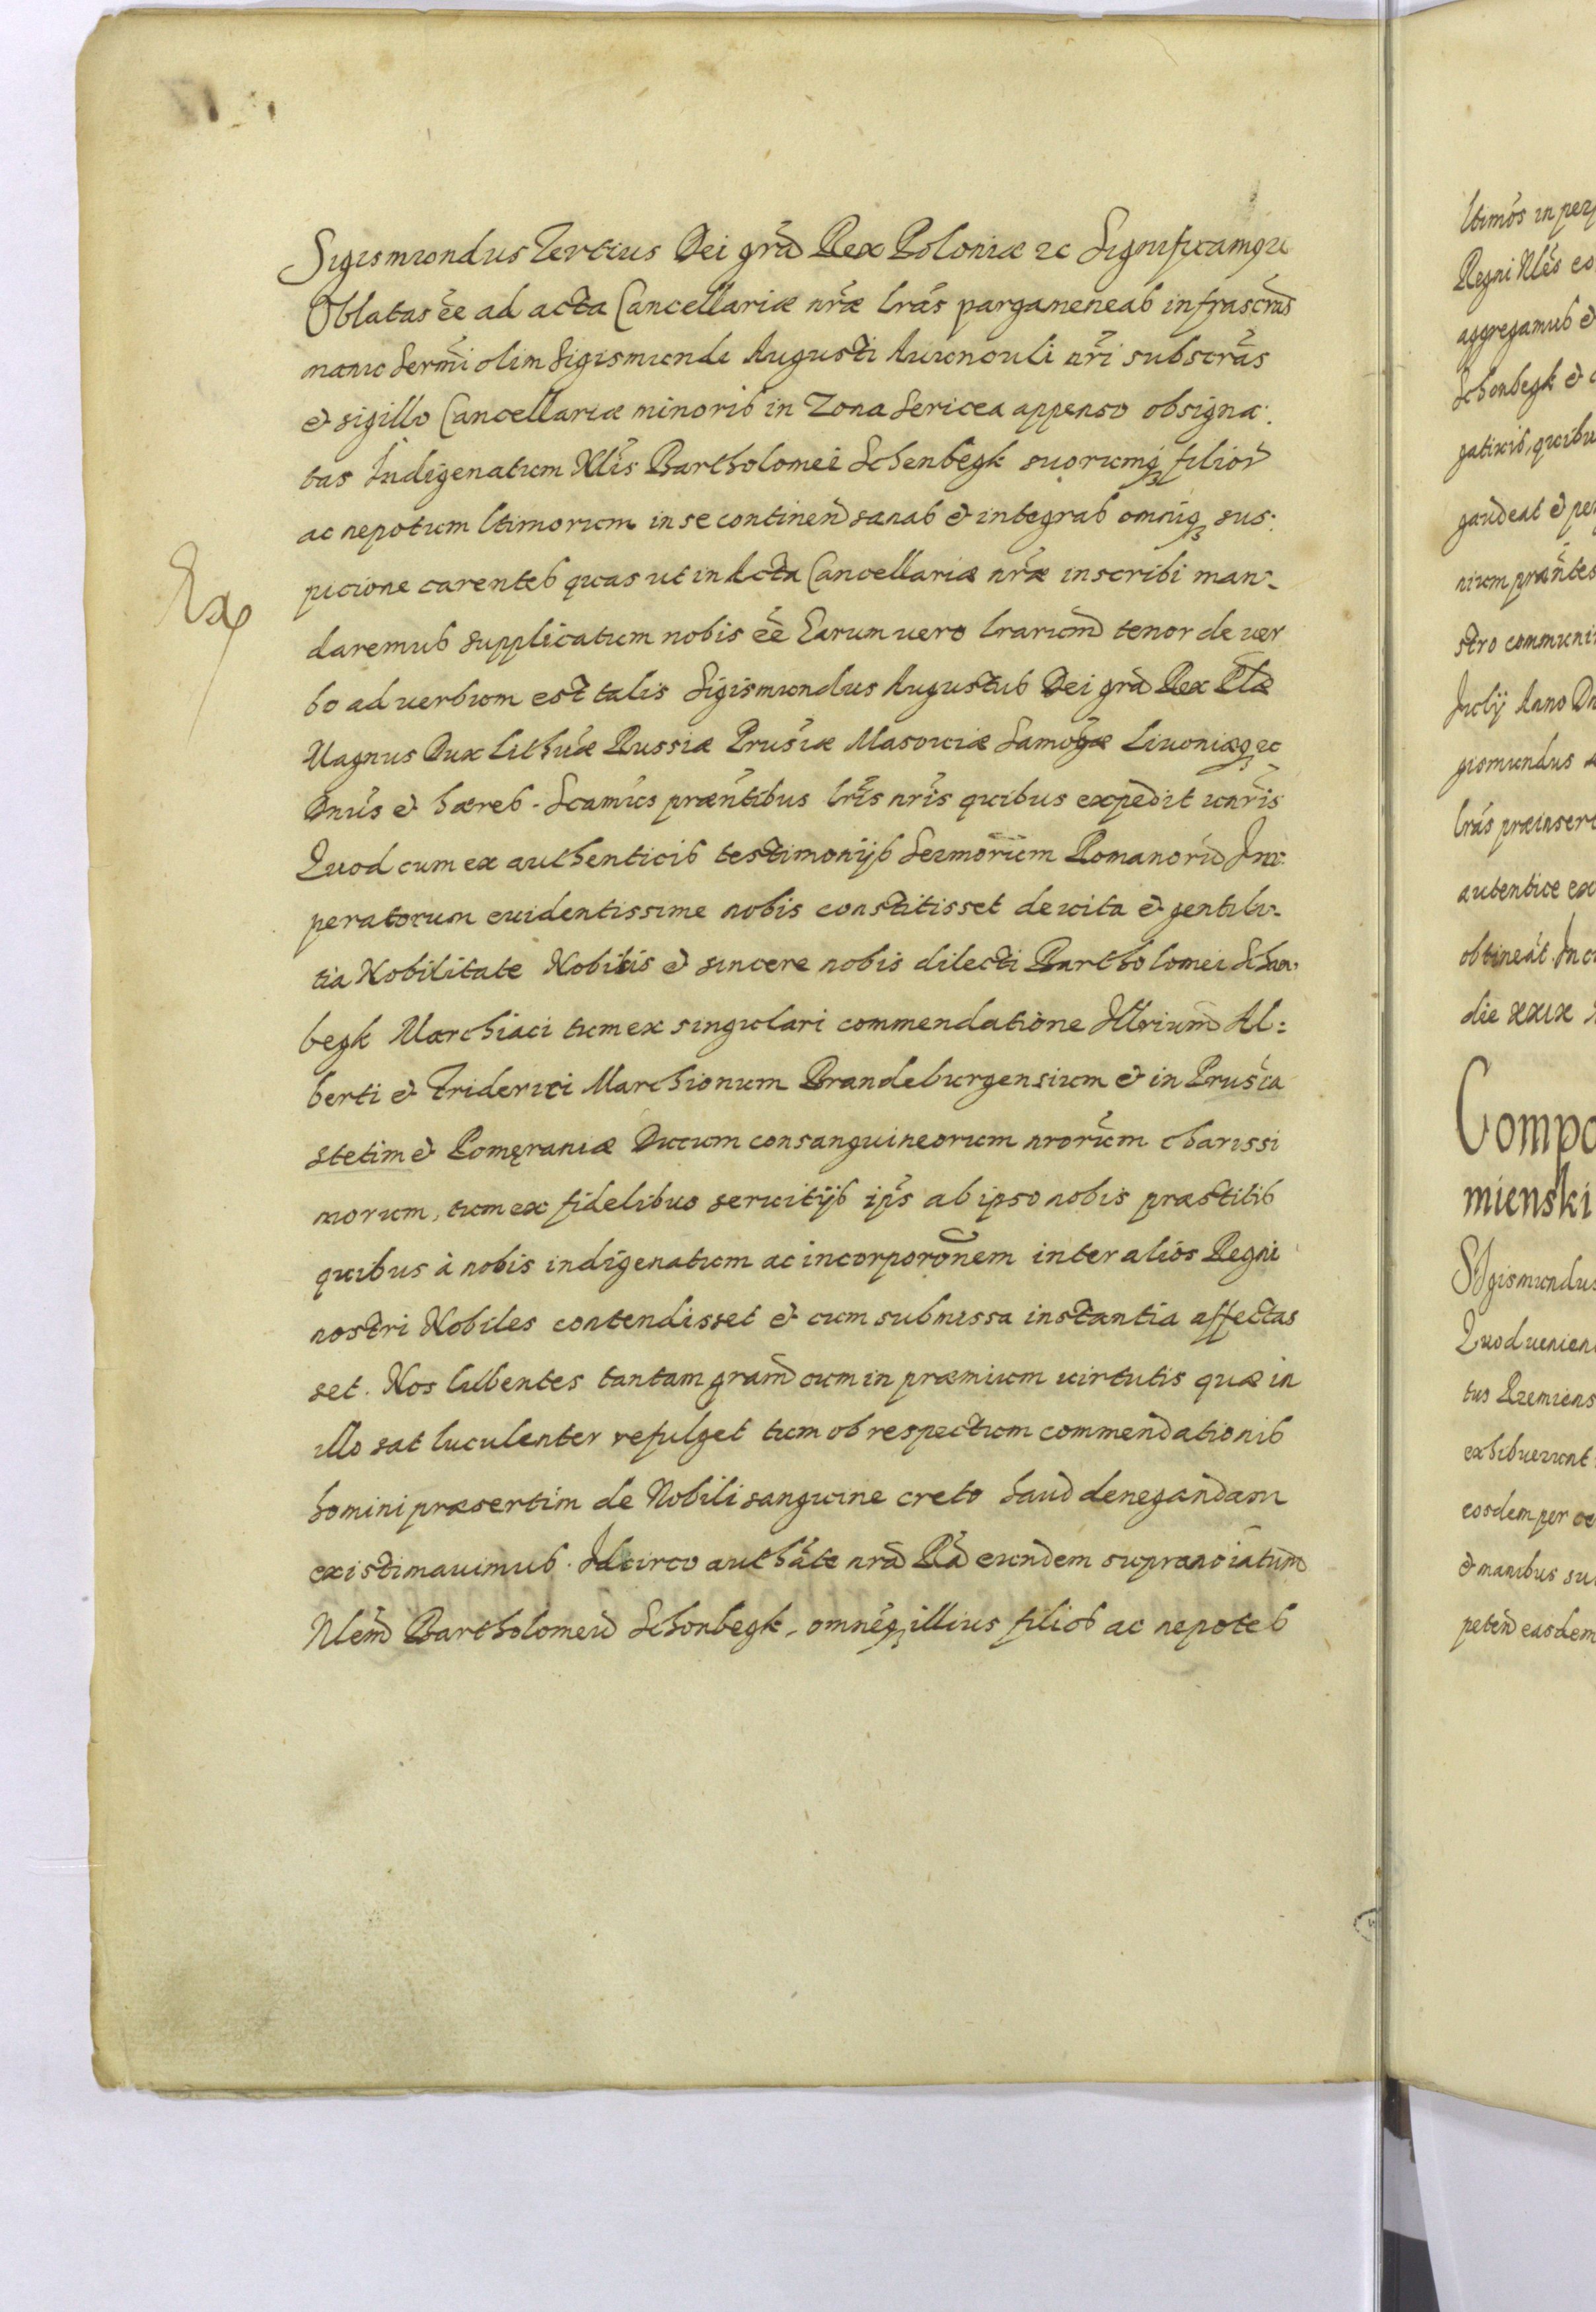 Sigismundus Tertius Dei gra͂ Rex Poloniæ ꝛc Significamꝰ
Oblatas ee͂ ad acta Cancellariæ nr͂æ lr͂as pargameneas infrascr͂as
manu Sermi͂ olim Sigismundi Augusti Auunculi nr͂i subscr͂as
& sigillo Cancellariæ minoris in Zona Sericea appenso obsigna:
tas Indigenatum Nl͂is Bartholomei Schenbegk suorumq3 filior͂
ac nepotum ltimorum in se continen͂ sanas & integras omniq3 sus:
picione carentes quas ut in Acta Cancellariæ nr͂æ inscribi man-
daremus supplicatum nobis ee͂ Earum vero lrarum͂ tenor de ver
bo ad uerbum est talis Sigismundus Augustus Dei gra͂ Rex Plæ͂
Magnus Dux Lithu͂æ Russiæ Prus͂iæ Masouiæ Samog͂æ Liuoniæq3 ꝛc
Dnu͂s & hæres. Scamu͂s præn͂tibus lr͂is nr͂is quibus expedit unr͂is
Quod cum ex authenticis testimonijs Sermor͂um Romanoru͂ Im:
peratorum euidentissime nobis constitisset de uita & gentili-
tia Nobilitate Nobilis & sincere nobis dilecti Bartholomei Schon:
begk Marchiaci tum ex singulari commendatione Illrium͂ Al:
berti & Friderici Marchionum Brandeburgensium & in Prus͂ia
Stetim & Pomęraniæ Ducum consanguineorum nror͂um charissi
morum, tum ex fidelibus seruitijs ip͂s ab ipso nobis præstitis
quibus à nobis indigenatum ac incorporo͂nem inter alios Regni
nostri Nobiles contendisset & cum submissa instantia affectas
set. Nos lubentes tantam gram͂ cum in præmium uirtutis quæ in
illo sat luculenter refulget tum ob respectum commendationis
homini præsertim de Nobili sanguine creto haud denegandam
existimauimus. Idcirco auth͂ate nra͂ Ra͂ eundem supranoi͂atum͂
Nlem͂ Bartholomeu͂ Schonbegk, omne͂sq3 illius filios ac nepotes
Ex
ltimos in perp
Regni Nl͂es co
aggregamus &
Schonbegk &
gatiuis, quibu
gaudeat & per
nium præn͂tes
stro communi
Julij Anno Dn
gismundus
lr͂as præinsert
autentice ex
obtineat. In c
die xxix
Compo
mienski
Sigismundus
Quod uenien
tus Przemiens
exhibuerunt
eosdem per
& manibus su
peten͂ easdem